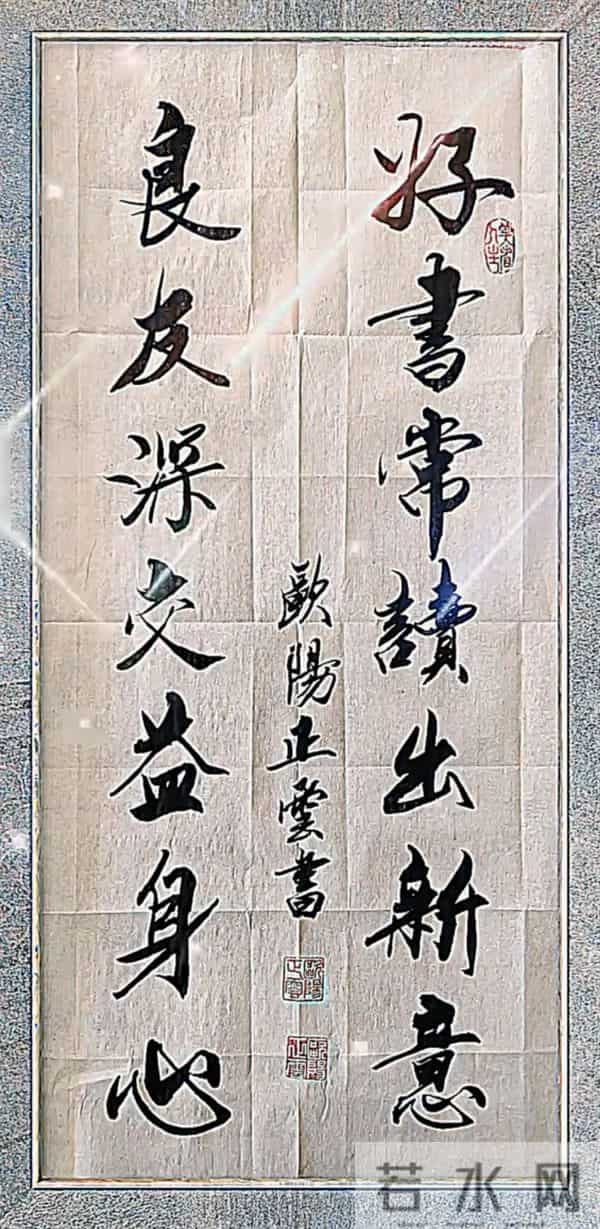 好書常讀出新意
良友深交益身心
歐陽正雲書
若水网